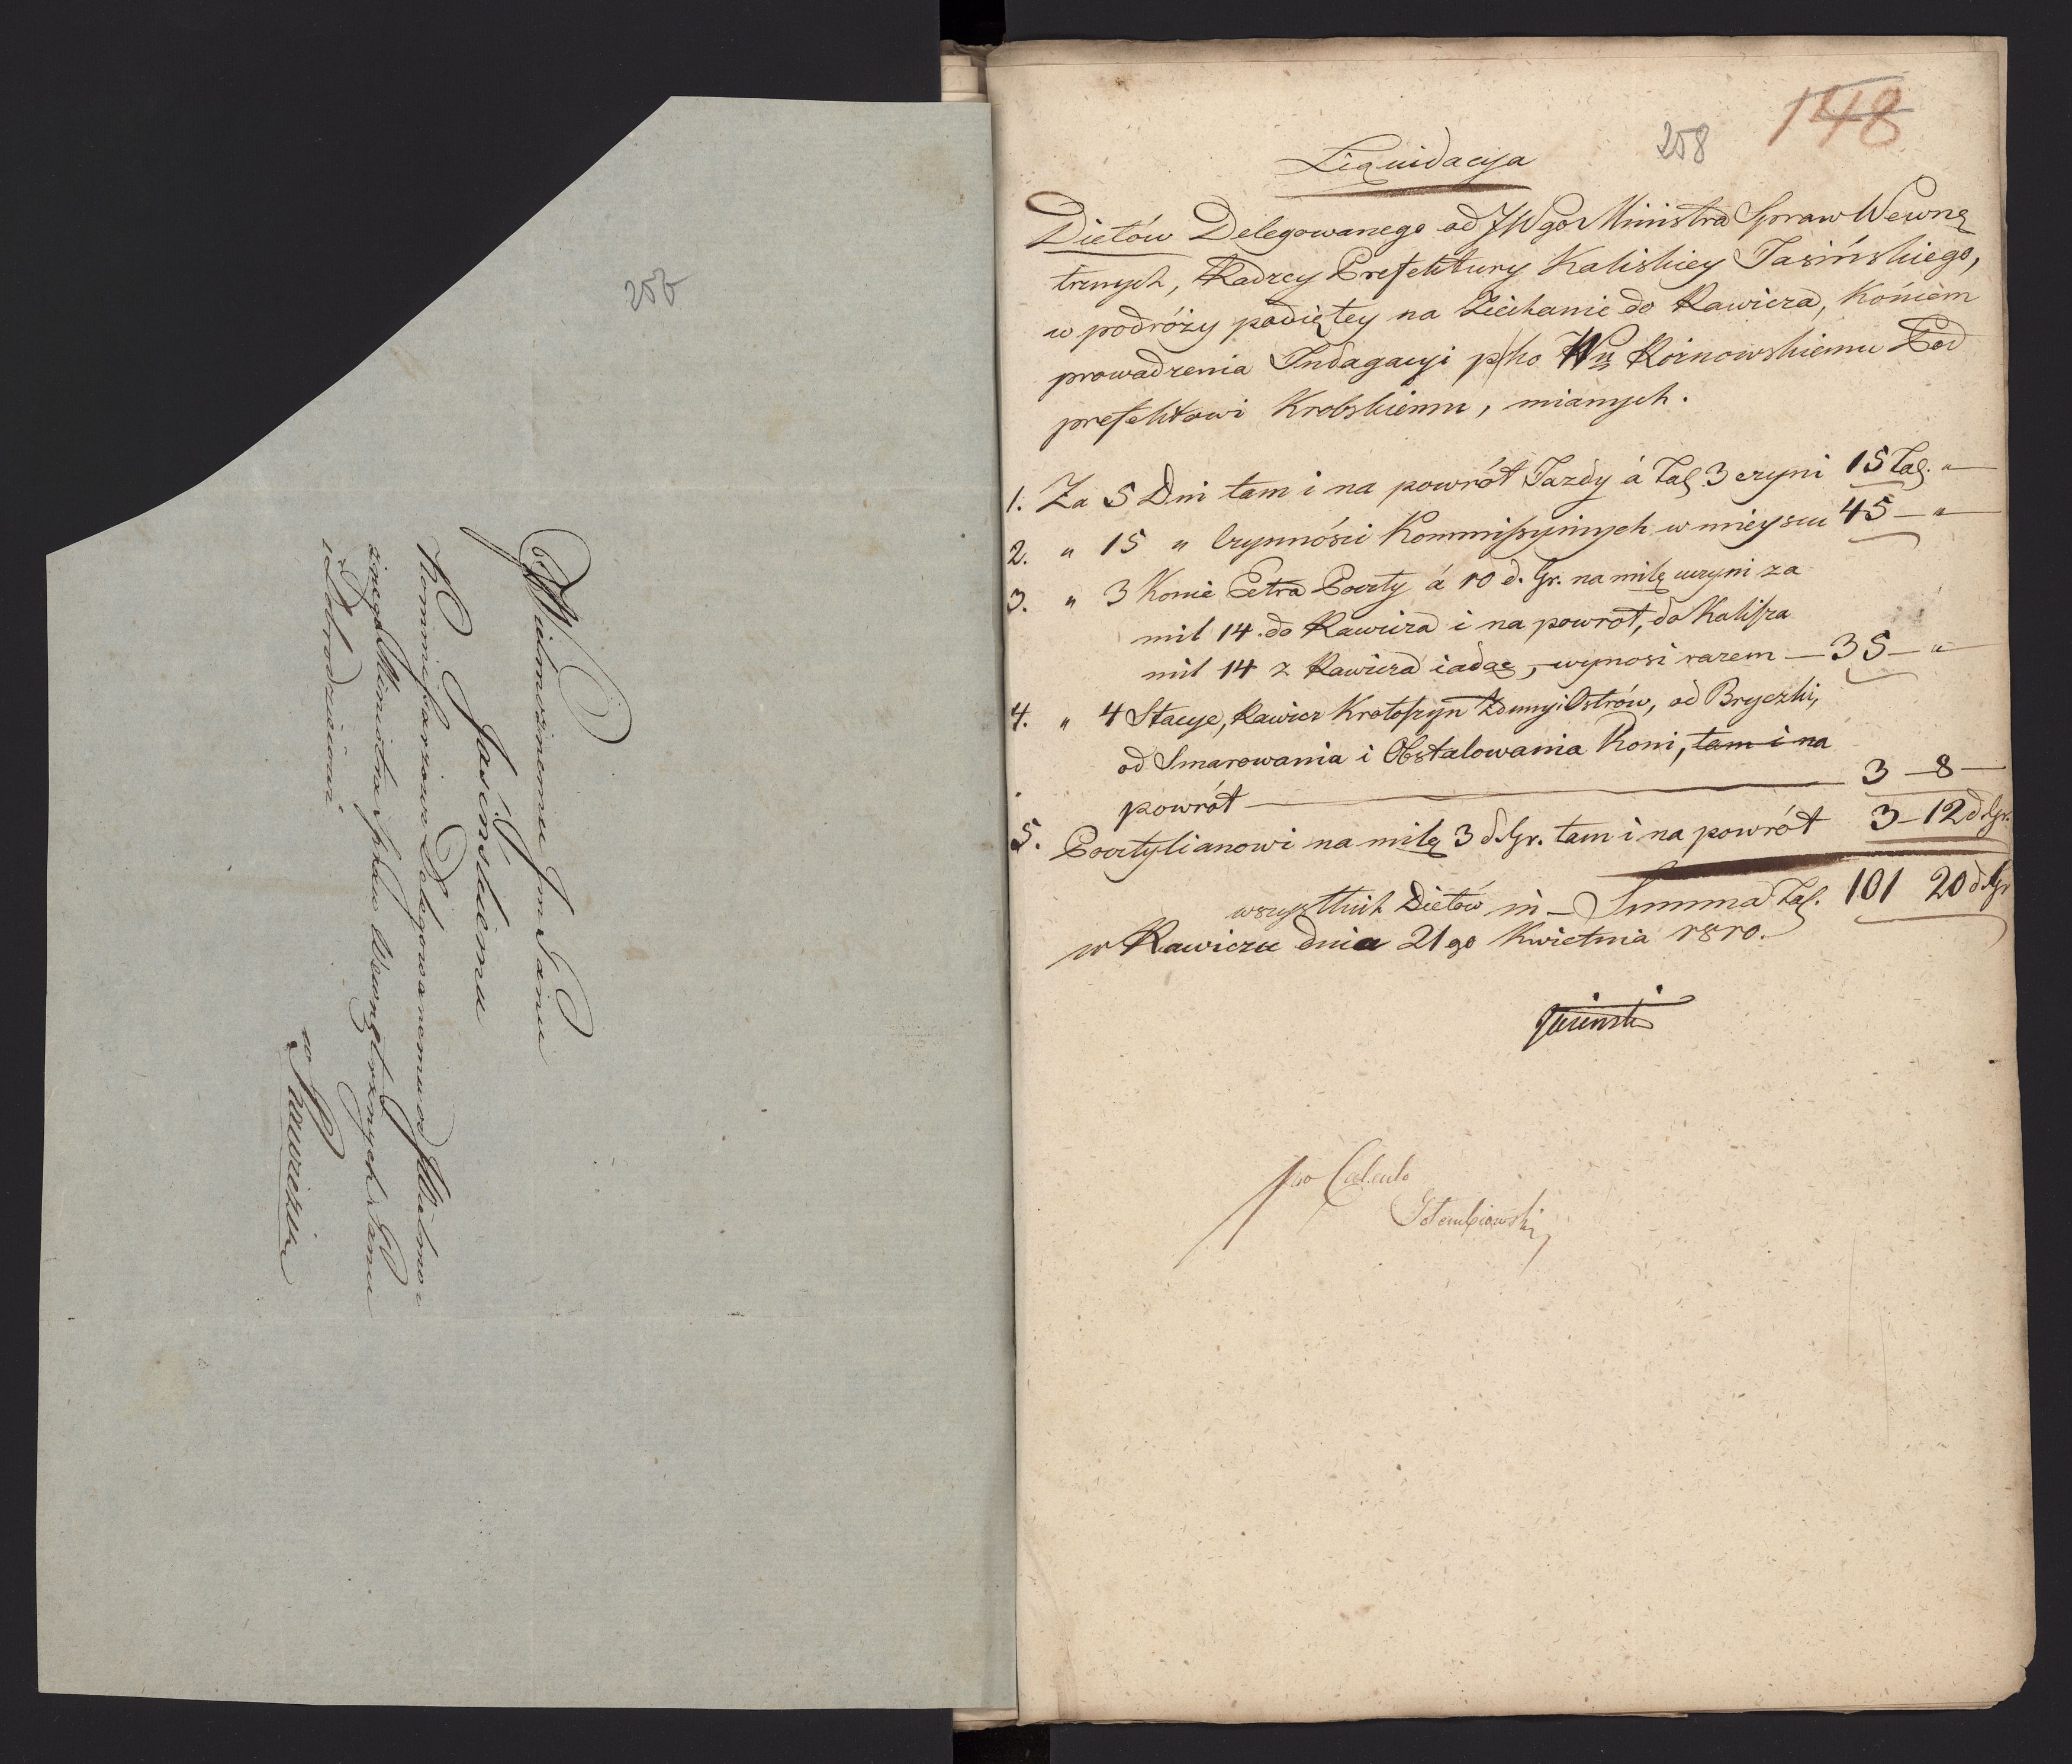 257
Wielmożnemu Jm Panu
Jasińskiemu
Kommissarzowi Delegowanemu od JWielmo
żnego Ministra Spraw Wewnętrznych Panu
i Dobrodziejowi
w Rawiczu
258
148
Liquidacyja
Dietów Delegowanego od JWgo Ministra Spraw Wewnę
trznych, Radzcy Prefektury Kaliskiey Jasińskiego,
w podróży podiętey na Ziechanie do Rawicza, Końcem
prowadzenia Indagacyi p/ko Wu Roznowskiemu Pod
prefektowi Krobskiemu, mianych.
1. Za 5 Dni tam i na powrót Jazdy á Tal 3 czyni 15 Tal. "
2. " 15 " Czynności Kommissyinych w mieyscu 45 — "
3. " 3 Konie Extra Poczty á 10 d. Gr. na milę uczyni za
mil 14. do Rawicza i na powrot, do Kalisza
mil 14 z Rawicza iadąc, wynosi razem — 35 — "
4. " 4 Stacye, Rawicz Krotoszyn Zduny i Ostrów, od Bryczki,
od Smarowania i Obstalowania Koni, tam i na
powrót — 3 — 8 —
5. Pocztylianowi na milę 3 d. Gr. tam i na powrót 3 — 12 d. Gr.
wszystkich Dietów in — Summa Tal. 101 20 d. Gr
w Rawiczu dnia 21go Kwietnia 1810.
Jasiński
pro Calculo
Gołembiowski